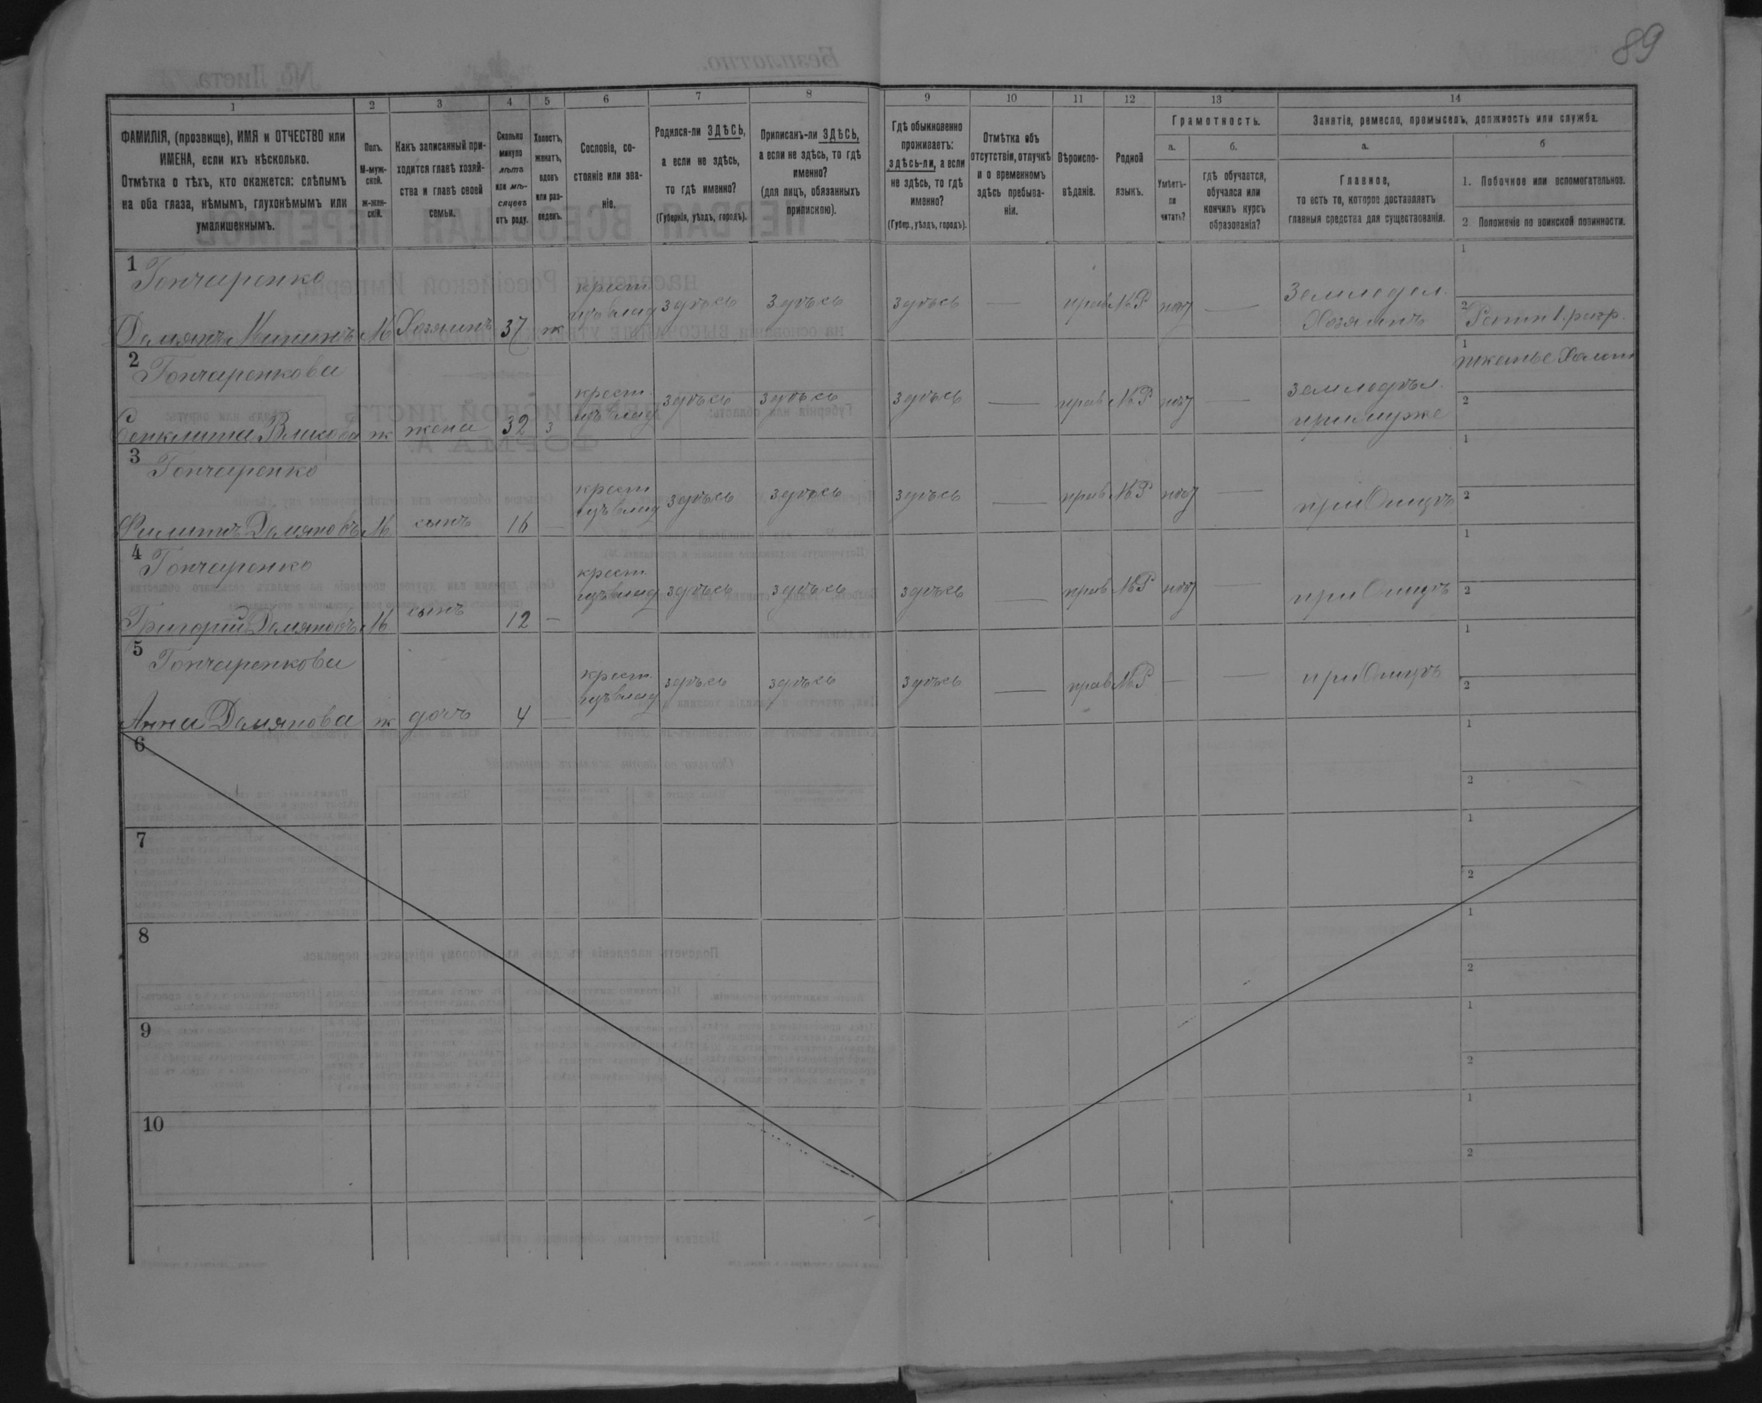 89
1 2 3 4 5 6 7 8 9 10 11 12 13 14
ФАМИЛІЯ, (прозвище), ИМЯ и ОТЧЕСТВО или
ИМЕНА, если ихъ нѣсколько.
Отмѣтка о тѣхъ, кто окажется: слѣпымъ
на оба глаза, нѣмымъ, глухонѣмымъ или
умалишеннымъ.
Полъ.
М-муж-
ской.
ж-жен-
скій.
Какъ записанный при-
ходится главѣ хозяй-
ства и главѣ своей
семьи.
Сколько
минуло
лѣтъ
или мѣ-
сяцевъ
отъ роду.
Холостъ,
женатъ,
вдовъ
или раз-
веденъ.
Сословіе, со-
стояніе или зва-
ніе.
Родился-ли ЗДѢСЬ,
а если не здѣсь,
то гдѣ именно?
(Губернія, уѣздъ, городъ).
Приписанъ-ли ЗДѢСЬ,
а если не здѣсь, то гдѣ
именно?
(для лицъ, обязанныхъ
припискою).
Гдѣ обыкновенно
проживаетъ:
здѣсь-ли, а если
не здѣсь, то гдѣ
именно?
(Губер., уѣздъ, городъ).
Отмѣтка объ
отсутствіи, отлучкѣ
и о временномъ
здѣсь пребыва-
ніи.
Вѣроиспо-
вѣданіе.
Родной
языкъ.
Грамотность.
а.
Умѣетъ-
ли
читать?
б.
гдѣ обучается,
обучался или
кончилъ курсъ
образованія?
Занятіе, ремесло, промыселъ, должность или служба.
а.
Главное,
то есть то, которое доставляетъ
главныя средства для существованія.
б
1. Побочное или вспомогательное.
2 Положеніе по воинской повинности.
1 Гончаренко
Демянъ М Хозяинъ 37 ж крест здѣсь здѣсь здѣсь — прав МР нѣт — Земледѣл.
Хозяинъ
1
2 Ратн 1. разр.
2 Гончаренкова
ж жена 32 з крест здѣсь здѣсь здѣсь — прав МР нѣт — земледѣл.
при мужѣ
1
2
3 Гончаренко
Филиппъ Демяновъ М сынъ 16 — крест здѣсь здѣсь здѣсь — прав МР нѣт — при Отцѣ
1
2
4 Гончаренко
Григорій Демяновъ М сынъ 12 — крест здѣсь здѣсь здѣсь — прав МР нѣт — при Отцѣ
1
2
5 Гончаренкова
Анна Демянова ж дочь 4 — крест здѣсь здѣсь здѣсь — прав МР — — при Отцѣ
1
2
6
1
2
7
1
2
8
1
2
9
1
2
10
1
2